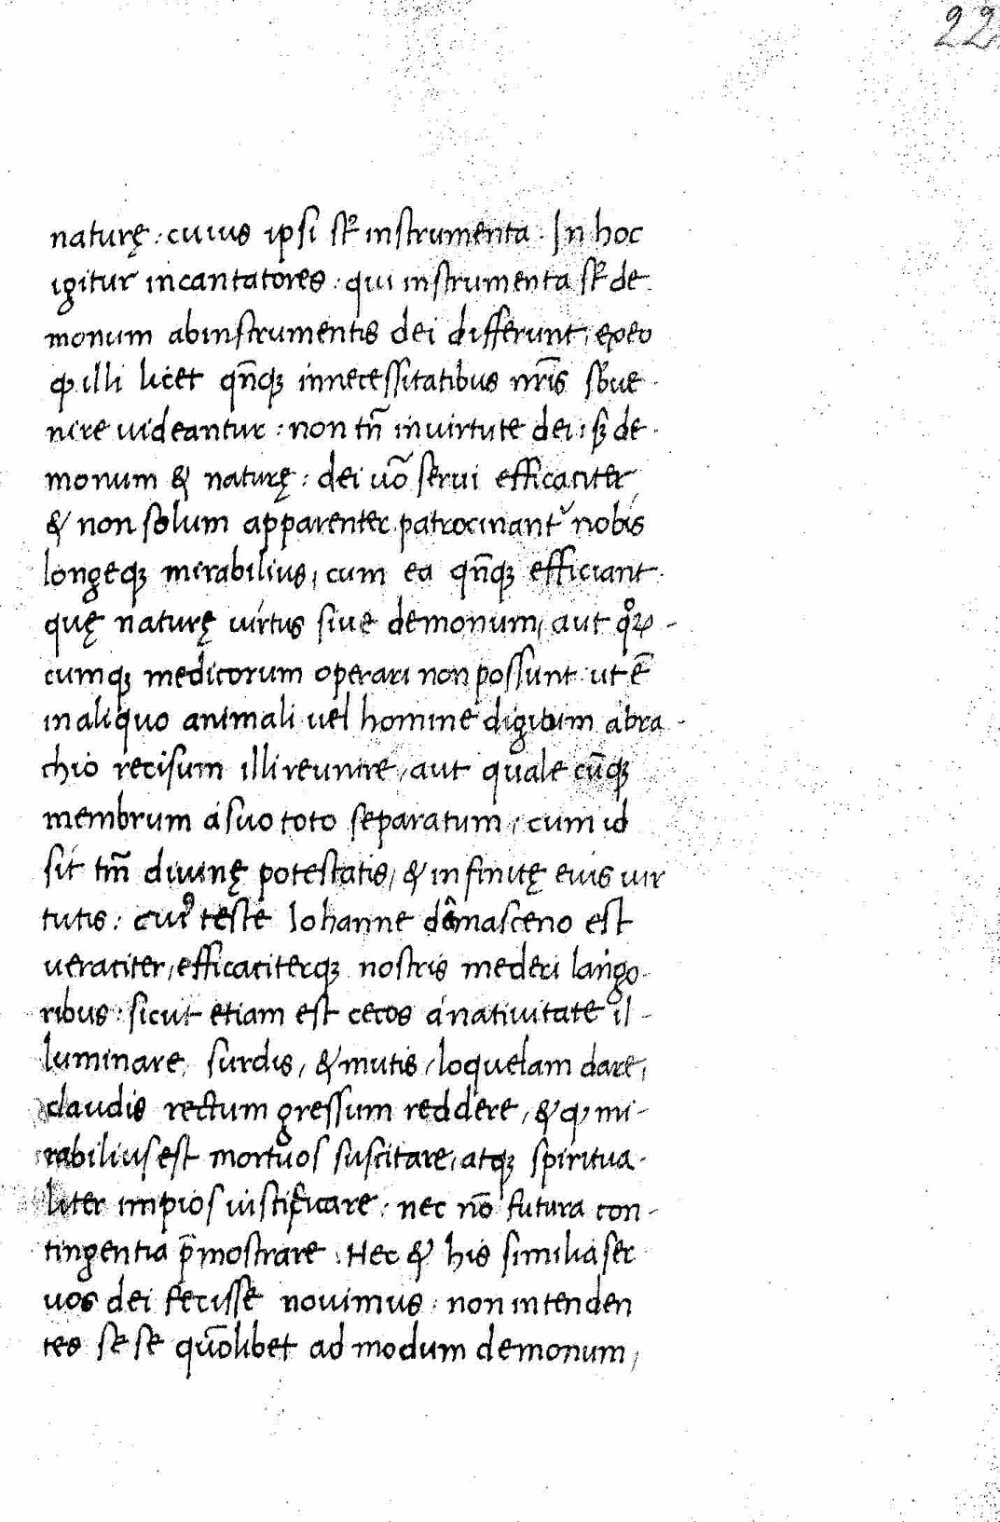 22
naturę : cuius ipsi sũt instrumenta . In hoc
igitur incantatores : qui instrumenta sũt de
monum ab instrumentis dei differunt, ex eo
ꝙ illi licet qñqꝫ in necessitatibus nr̃is sbue-
nire uideantur : non tñ in uirtute dei : sꝫ de-
monum & naturę : dei uõ serui efficaciter,
& non solum apparenter patrocinantᷣ nobis
longeqꝫ mirabilius, cum ea qñqꝫ efficiant
quę naturę uirtus siue demonum, aut qͦꝝ-
cumqꝫ medicorum operari non possunt ut ẽ
in aliquo animali uel homine digitum a bra-
chio recisum illi reunire, aut quale cũqꝫ
membrum a suo toto separatum, cum id
sit tm̃ diuinę potestatis, & infinitę eius uir
tutis : cuiꝰ teste Iohanne damasceno est
ueraciter, efficaciterqꝫ nostris mederi lango-
ribus : sicut etiam est cecos a natiuitate il-
luminare, surdis, & mutis, loquelam dare,
claudis rectum gressum reddere, & ꝙ mi-
rabilius est mortuos suscitare, atqꝫ spiritua-
liter impios iustificare : nec nõ futura con-
tingentia p̃mostrare . Hec & his similia ser
uos dei fecisse nouimus : non intenden
tes se se quõlibet ad modum demonum,